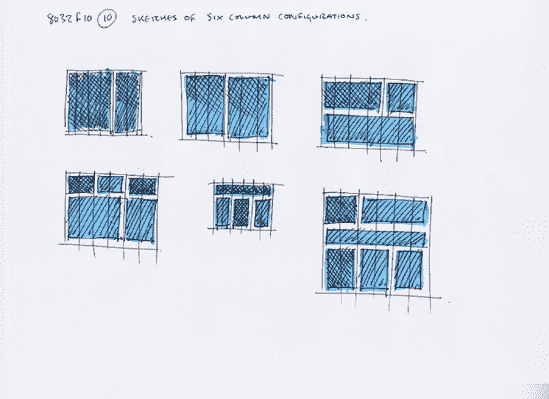 8032f10 10 SKETCHES OF SIX COLUMN CONFIGURATIONS.